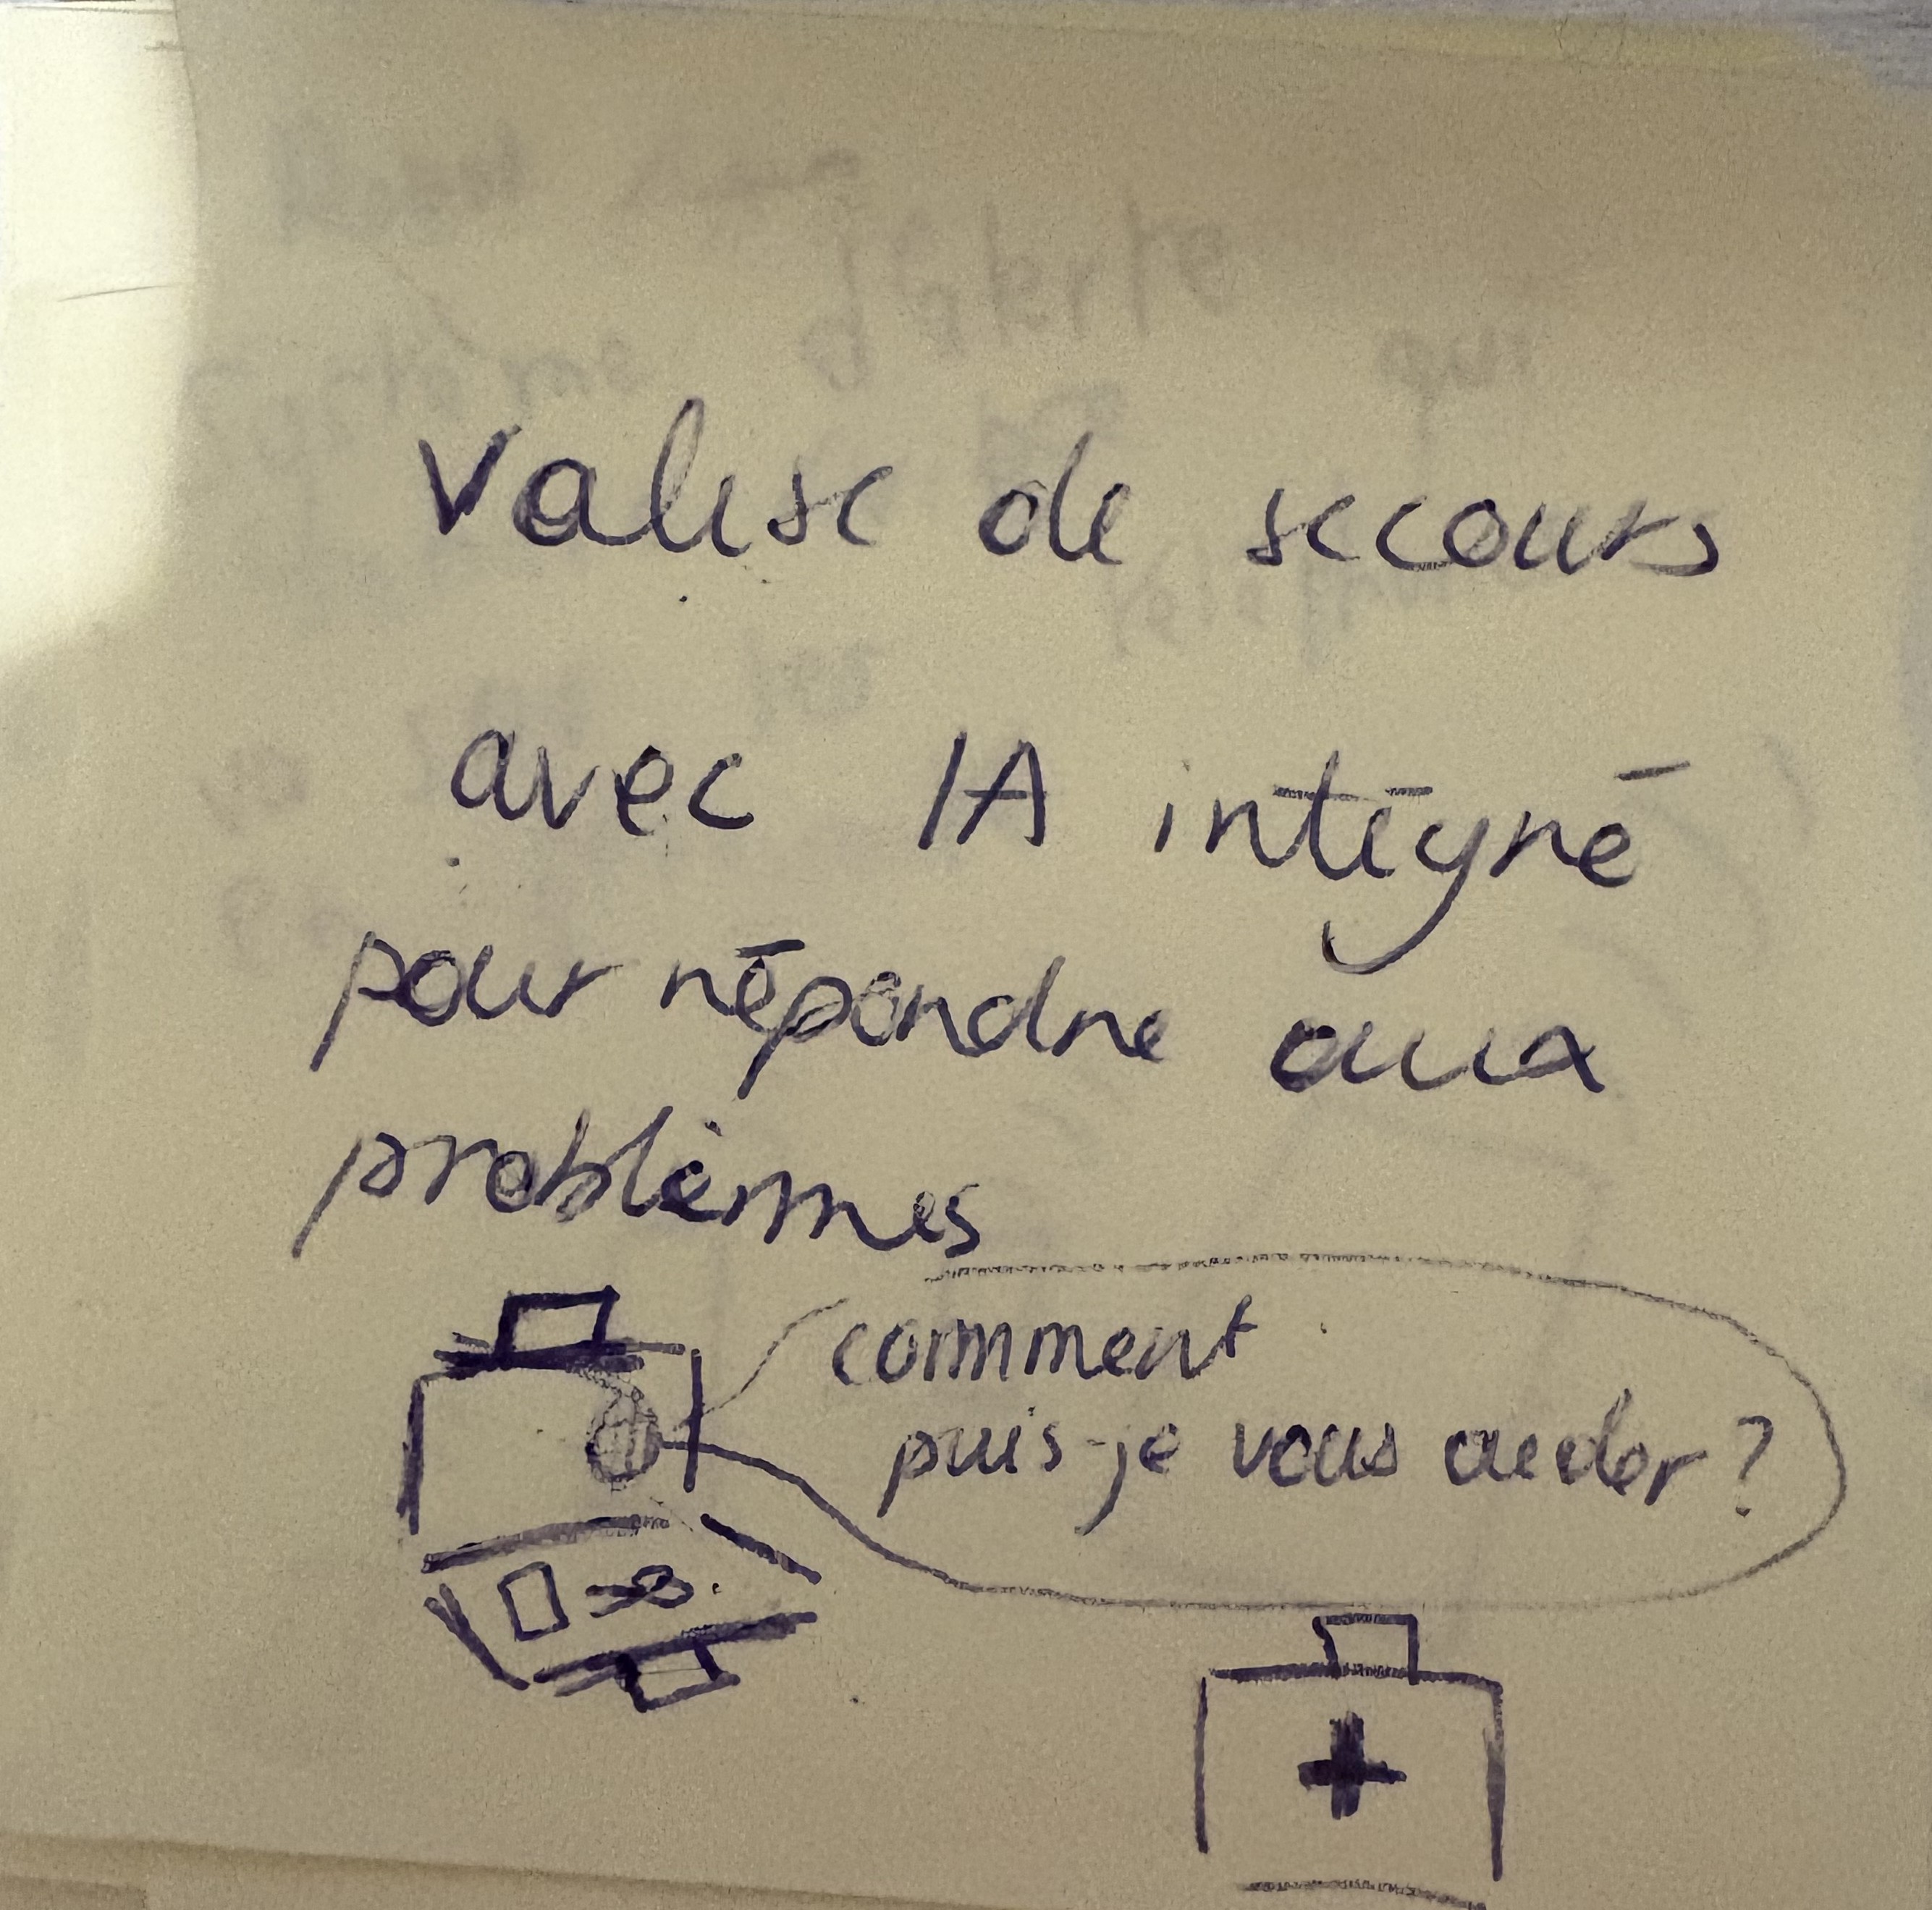 valise de secours
avec IA intégré
pour répondre aux
problèmes
comment
puis-je vous aider ?